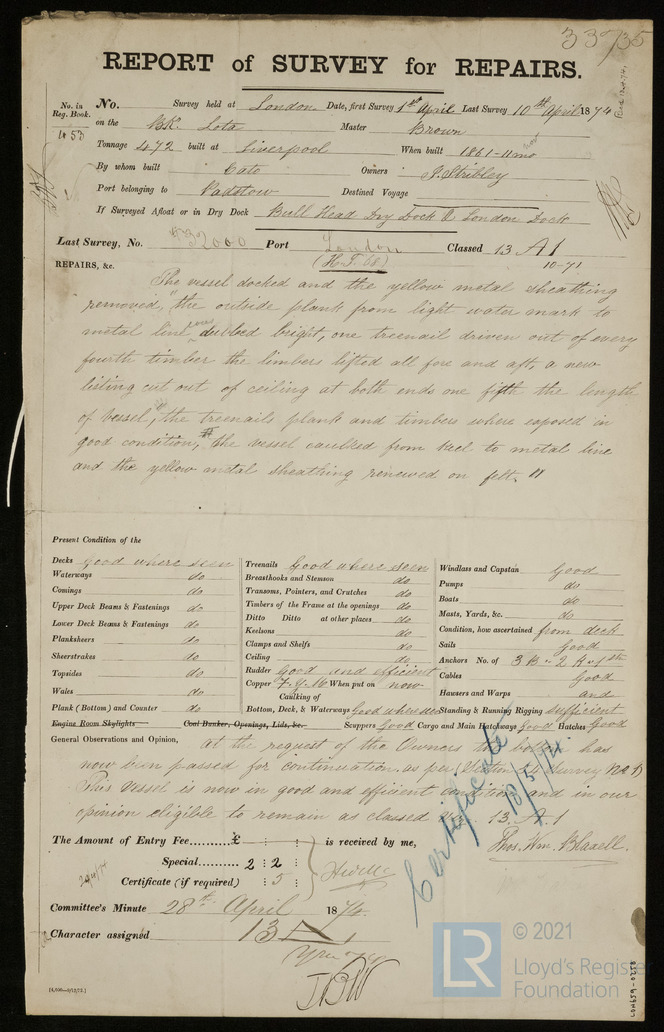 33735
REPORT of SURVEY for REPAIRS.
No. in Reg. Book. No. Survey held at London Date, first Survey 1st April Last Survey 10th April 1874
on the Bk. Lota Master Brown
Tonnage 472 built at Liverpool When built 1861-11mo
By whom built Cato Owners J. Stribley
Port belonging to Padstow Destined Voyage
If Surveyed Afloat or in Dry Dock Bull Head Dry Dock & London Dock
Last Survey, No. 32000 Port London Classed 13 A1
(H.T. 68) 10-71
REPAIRS, &c.
The vessel docked and the yellow metal sheathing
removed, "the outside plank from light water mark to
metal line dubbed bright, one treenail driven out of every
fourth timber the limbers lifted all fore and aft, a new
listing cut out of ceiling at both ends one fifth the length
of vessel", the treenails plank and timbers where exposed in
good condition, the vessel caulked from keel to metal line
and the yellow metal sheathing renewed on felt. "
Present Condition of the
Decks good where seen
Waterways do
Comings do
Upper Deck Beams & Fastenings do
Lower Deck Beams & Fastenings do
Planksheers do
Sheerstrakes do
Topsides do
Wales do
Plank (Bottom) and Counter do
Engine Room Skylights Coal Bunker, Openings, Lids, &c.
Treenails Good where seen
Breasthooks and Stemson do
Transoms, Pointers, and Crutches do
Timbers of the Frame at the openings do
Ditto Ditto at other places do
Keelsons do
Clamps and Shelfs do
Ceiling do
Rudder Good and efficient
Copper Y.M. 16 When put on now
Caulking of
Bottom, Deck, & Waterways Good where seen
Scuppers Good Cargo and Main Hatchways Good Hatches Good
Windlass and Capstan Good
Pumps do
Boats do
Masts, Yards, &c. do
Condition, how ascertained from deck
Sails Good
Anchors No. of 3 B " 2 K " 1 St
Cables Good
Hawsers and Warps and
Standing & Running Rigging Sufficient
General Observations and Opinion, At the request of the Owners the has
now been passed for continuation as per (Section 54 Survey No 1)
This Vessel is now in good and efficient condition and in our
opinion eligible to remain as classed viz. 13 A 1
Thos. Wm. Blaxell.
Certificate 10/5/74
The Amount of Entry Fee.......... £ : : is received by me,
Special.......... 2 : 2 :
Certificate (if required) : 5 :
Committee's Minute 28th April 1874
Character assigned 13 A 1
[6,000.—9/12/72.]
LON659-0258
LR
© 2021
Lloyd's Register
Foundation